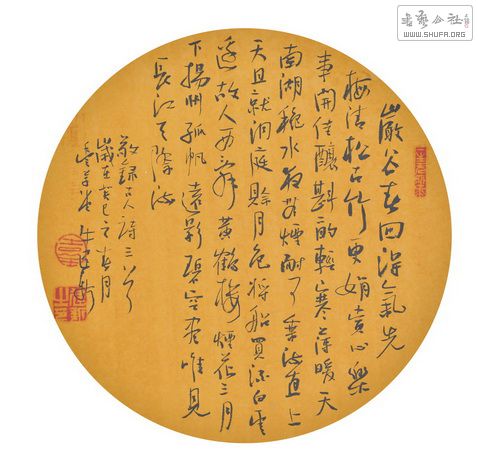 巖谷春回得氣先
梅清松古竹更娟賞心樂
事開佳釀斟酌輕寒薄暖天
南湖秋水夜無煙耐可乘流直上
天且就洞庭賒月色將船買酒白雲
邊故人西辭黃鶴樓煙花三月
下揚州孤帆遠影碧空盡唯見
長江天際流
敬錄古人詩三首
歲在癸巳之春月
書藝公社
WWW.SHUFA.ORG